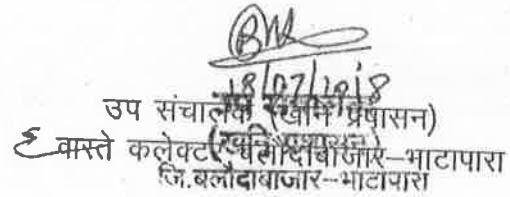 18/07/2018
उप संचालक (खनि प्रषासन)
वास्ते कलेक्टर बलौदाबाजार–भाटापारा
जि.बलौदाबाजार–भाटापारा